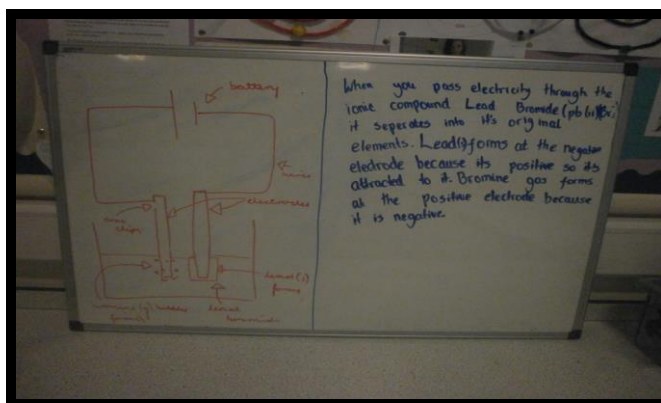 battery
wire
electrodes
lead (l)
forms
lead
bromide
When you pass electricity through the
ionic compound Lead Bromide (pb
it seperates into it's original
elements. Lead(l) forms at the negative
electrode because its positive so its
attracted to it. Bromine gas forms
at the positive electrode because
it is negative.